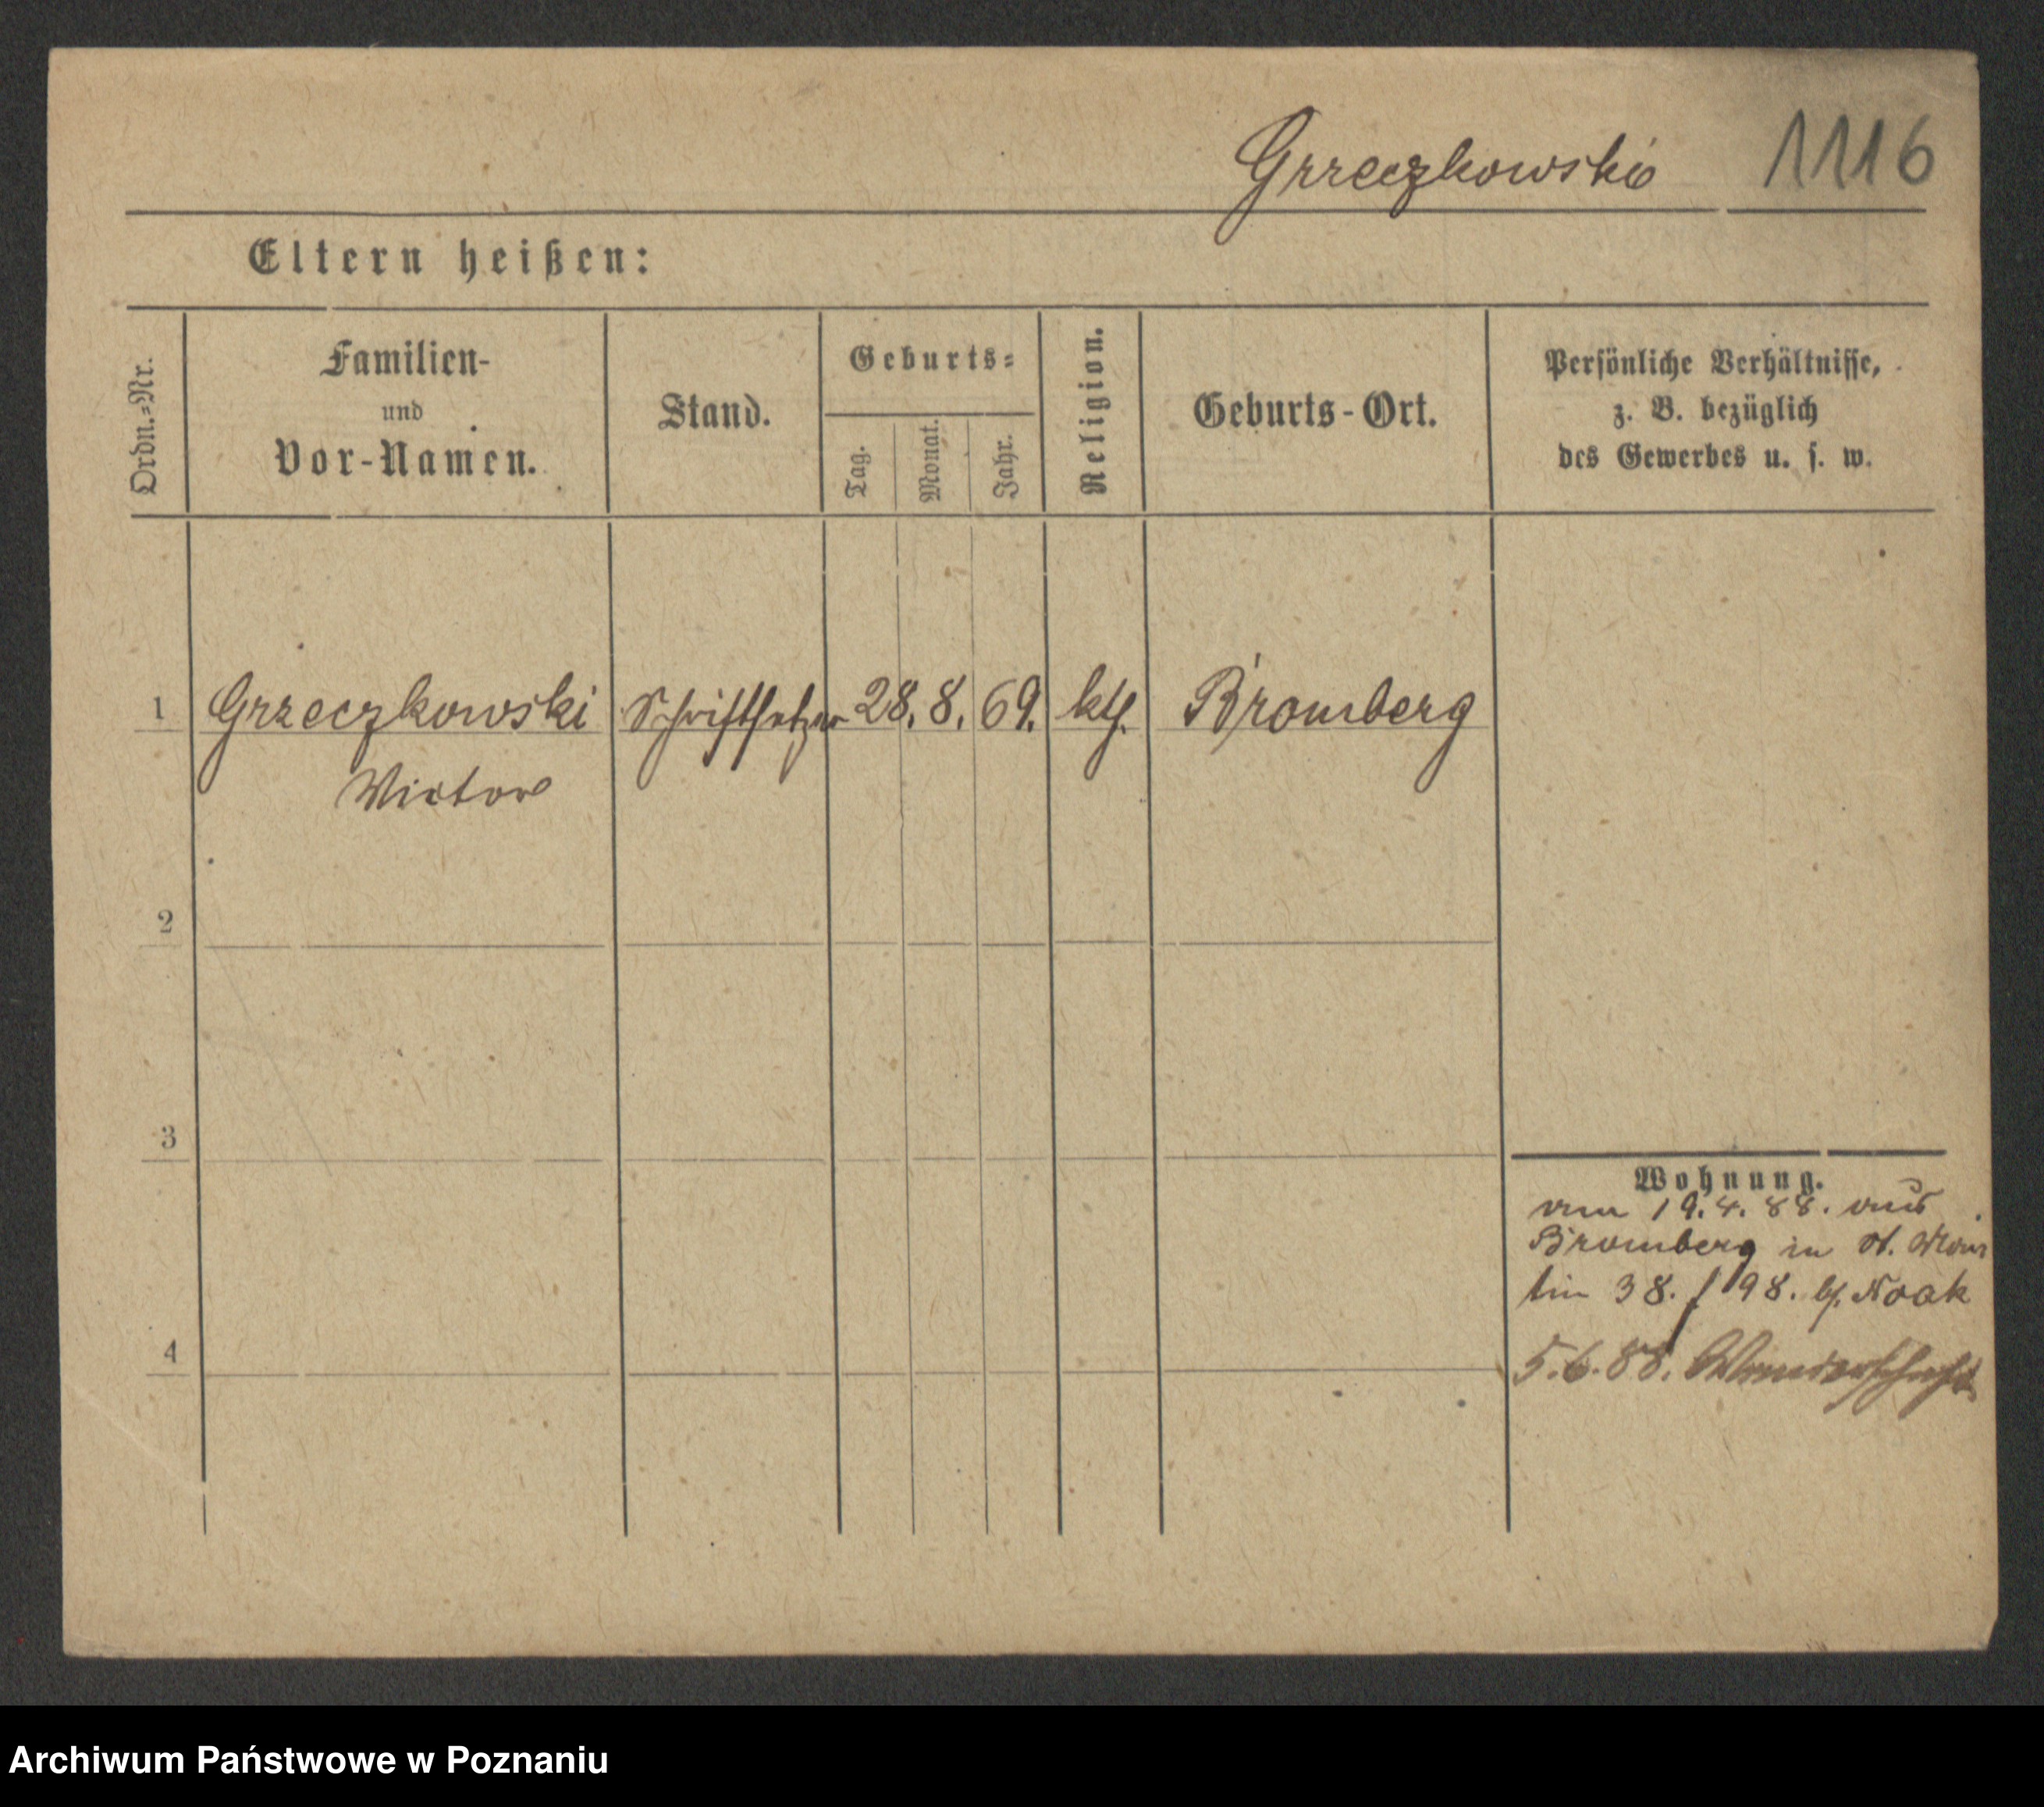 Grzeczkowski 1116
Eltern heißen:
Ordn.=Nr.
Familien-
und
Vor-Namen.
Stand.
Geburts=
Tag.
Monat.
Jahr.
Religion.
Geburts-Ort.
Persönliche Verhältnisse,
z. B. bezüglich
des Gewerbes u. s. w.
1 Grzeczkowski Schriftsetzer 28. 8. 69. kth. Bromberg
Victor
2
3
4
Wohnung.
am 19.4.88. aus
Bromberg in St. Mar
tin 38. / 98. b/. Noak
5.6.88. Wanderschaft
Archiwum Państwowe w Poznaniu